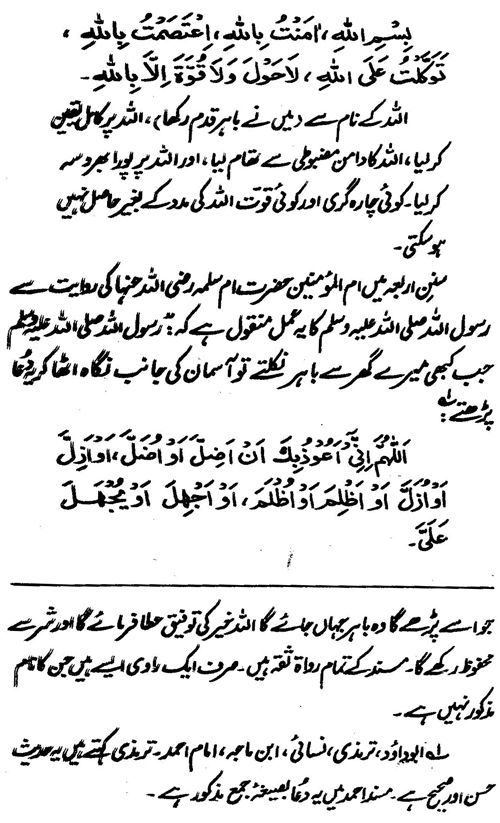 بِسْمِ اللهِ، اٰمَنْتُ بِاللهِ، اِعْتَصَمْتُ بِاللهِ،
تَوَكَّلْتُ عَلَى اللهِ، لَاحَوْلَ وَلَا قُوَّةَ اِلَّا بِاللهِ۔
اللہ کے نام سے (میں نے باہر قدم رکھا)، اللہ پر کامل یقین
کر لیا، اللہ کا دامن مضبوطی سے تھام لیا، اور اللہ پر پورا بھروسہ
کر لیا۔ کوئی چارہ گری اور کوئی قوّت اللہ کی مدد کے بغیر حاصل نہیں
ہو سکتی۔
سنن اربعہ میں ام المؤمنین حضرت ام سلمہ رضی اللہ عنہا کی روایت سے
رسول اللہ صلی اللہ علیہ وسلم کا یہ عمل منقول ہے کہ: "رسول اللہ صلی اللہ علیہ وسلم
جب کبھی میرے گھر سے باہر نکلتے تو آسمان کی جانب نگاہ اٹھا کر یہ دُعا
پڑھتے: لہ
اَللّٰهُمَّ اِنِّيْ اَعُوْذُبِكَ اَنْ اَضِلَّ اَوْ اُضَلَّ، اَوْ اَزِلَّ
اَوْ اُزَلَّ اَوْ اَظْلِمَ اَوْ اُظْلَمَ، اَوْ اَجْهِلَ اَوْ يُجْهَلَ
عَلَيَّ۔
جو اسے پڑھے گا وہ باہر جہاں جائے گا اللہ خیر کی توفیق عطا فرمائے گا اور شر سے
محفوظ رکھے گا۔ مسند کے تمام رواة ثقہ ہیں۔ صرف ایک راوی ایسے ہیں جن کا نام
مذکور نہیں ہے۔
لہ ابوداؤد، ترمذی، نسائی، ابن ماجہ، امام احمد۔ ترمذی کہتے ہیں یہ حدیث
حسن اور صحیح ہے۔ مسند احمد میں یہ دُعا بصیغۂ جمع مذکور ہے۔